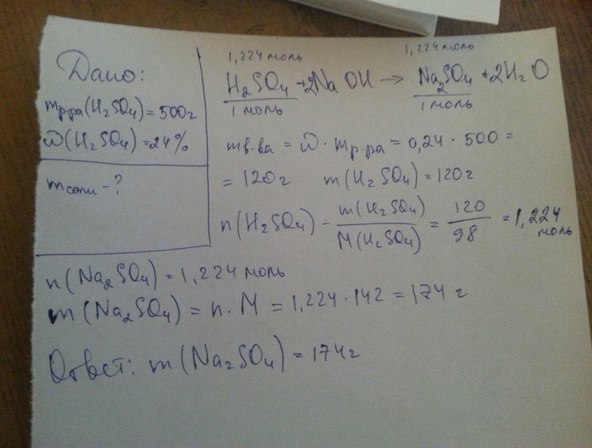 Дано:
mр-ра(H₂SO₄)=500г
ω(H₂SO₄)=24%
mсоли-?
1,224 моль 1,224 моль
H₂SO₄+2NaOH→Na₂SO₄+2H₂O
1 моль 1 моль
mв-ва = ω · mр-ра = 0,24 · 500 =
= 120г m(H₂SO₄)=120г
n(H₂SO₄) = m(H₂SO₄)/M(H₂SO₄) = 120/98 = 1,224 моль
n(Na₂SO₄)=1,224 моль
m(Na₂SO₄) = n · M = 1,224 · 142 = 174 г
Ответ: m(Na₂SO₄)=174г